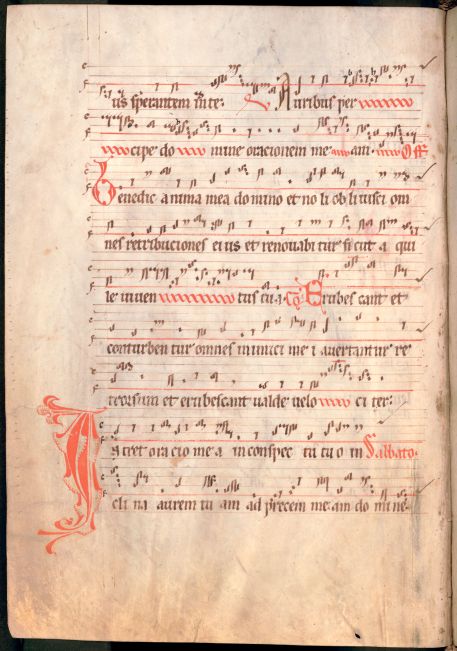 us sperantem in te. V Auribus per
cipe do mine oracionem me am Off
Benedic anima mea domino et noli oblivisci om
nes retribuciones eius et renovabitur sicut a qui
le iuven tus tua. Co Erubescant et
conturbentur omnes inimici mei avertantur re
trorsum et erubescant valde velo citer.
Intret oracio mea in conspec tu tuo in Sabbato.
clina aurem tu am ad precem meam domine.